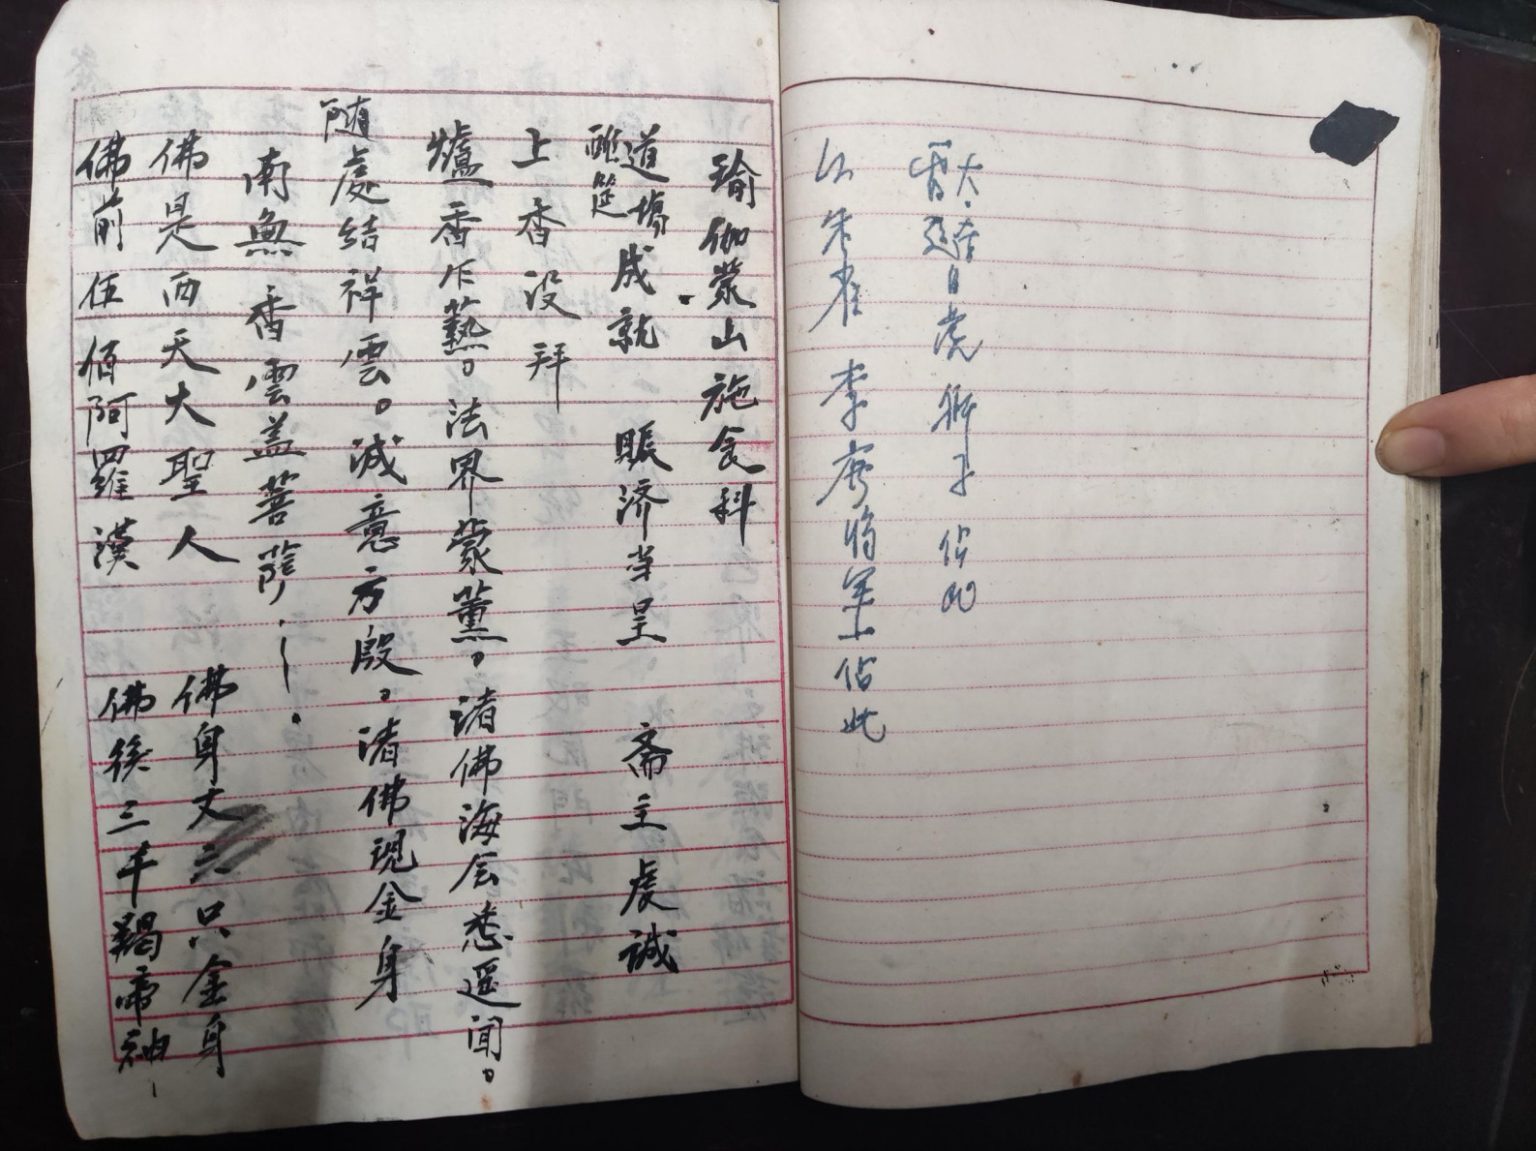 大
白虎 獅子
朱雀 李 将軍 占此
瑜伽蒙山施食科
道場成就 賑济当呈 斋主虔誠
醮筵
上香没拜
爐香乍爇。法界蒙薰。渚佛海会悉遥闻。
随處结祥雲。诚意方殷。渚佛現金身
南無香雲盖菩薩
佛是西天大聖人 佛身丈二只金身
佛前伍佰阿羅漢 佛後三千羯帝神